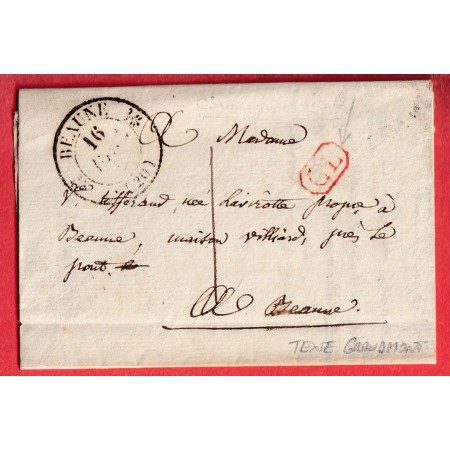 BEAUNE
16
(20)
A Madame
CL
Ve tifferand, née Lavirotte propre, à
Beaune, maison villiard, près Le
pont.
1
A Beaune.
TEXTE GRANDMONT